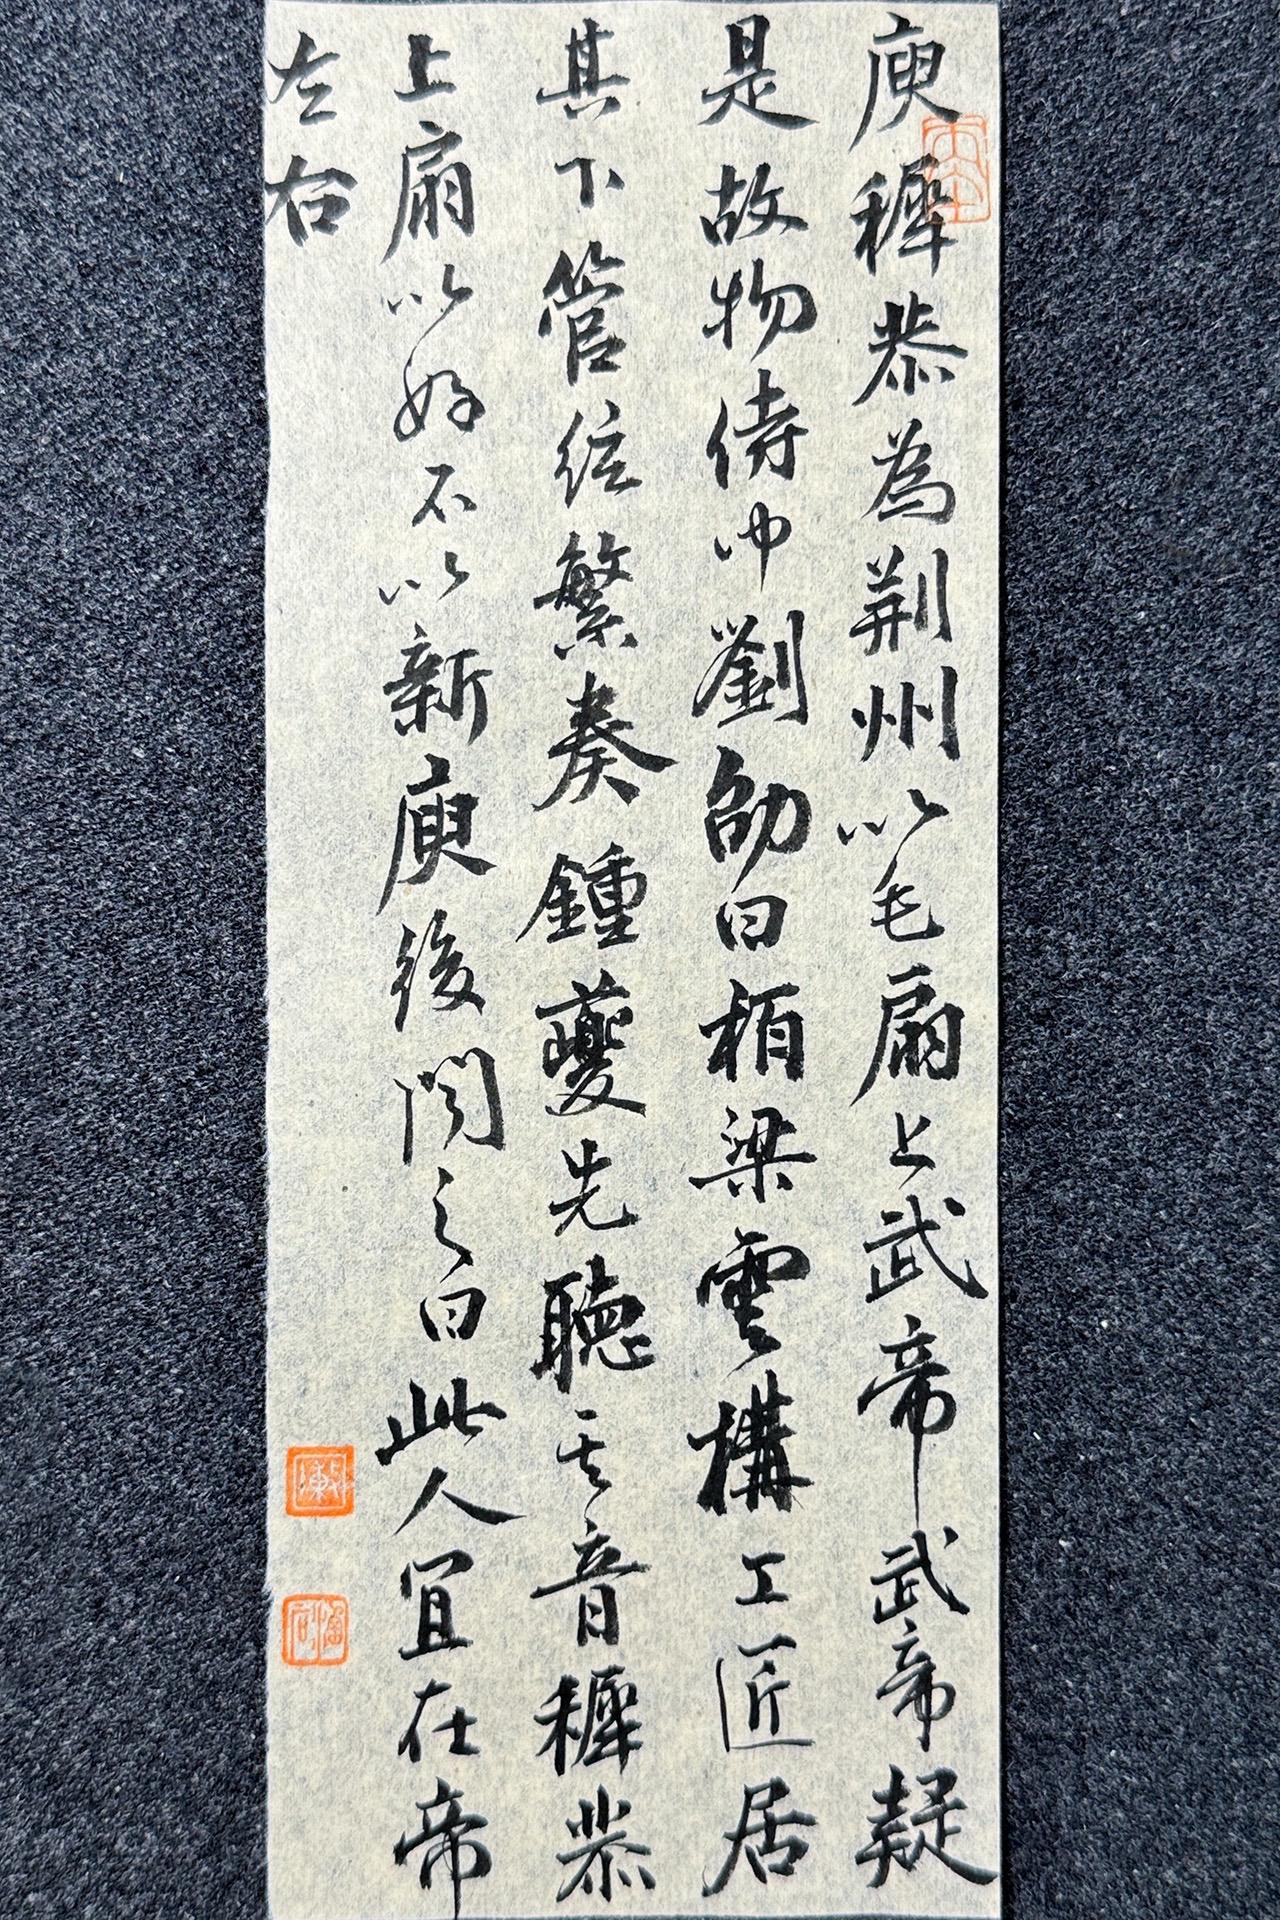 庾穉恭為荊州以毛扇上武帝武帝疑
是故物侍中劉劭曰栢梁雲構工匠居
其下管弦繁奏鍾夔先聽其音穉恭
上扇以好不以新庾後聞之曰此人宜在帝
左右